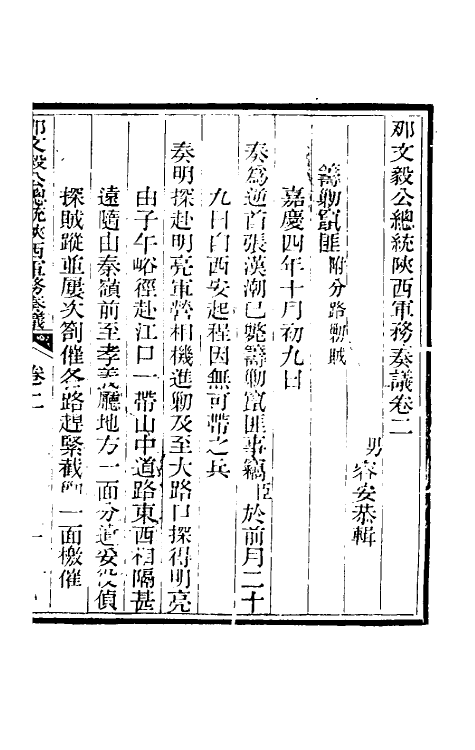 那文毅公總統陝西軍務奏議卷二
男容安恭輯
籌勦竄匪附分路勦賊
嘉慶四年十月初九日
奏爲逆首張漢潮已斃籌勦竄匪事竊臣於前月二十
九日自西安起程因無可帶之兵
奏明探赴明亮軍營相機進勦及至大路口探得明亮
由子午峪徑赴江口一帶山中道路東西相隔甚
遠隨由秦嶺前至孝義廳地方一面分遣妥役偵
探賊蹤並屢次劄催各路趕緊截勦一面檄催
那文毅公總統陝西軍務奏議 卷二 一